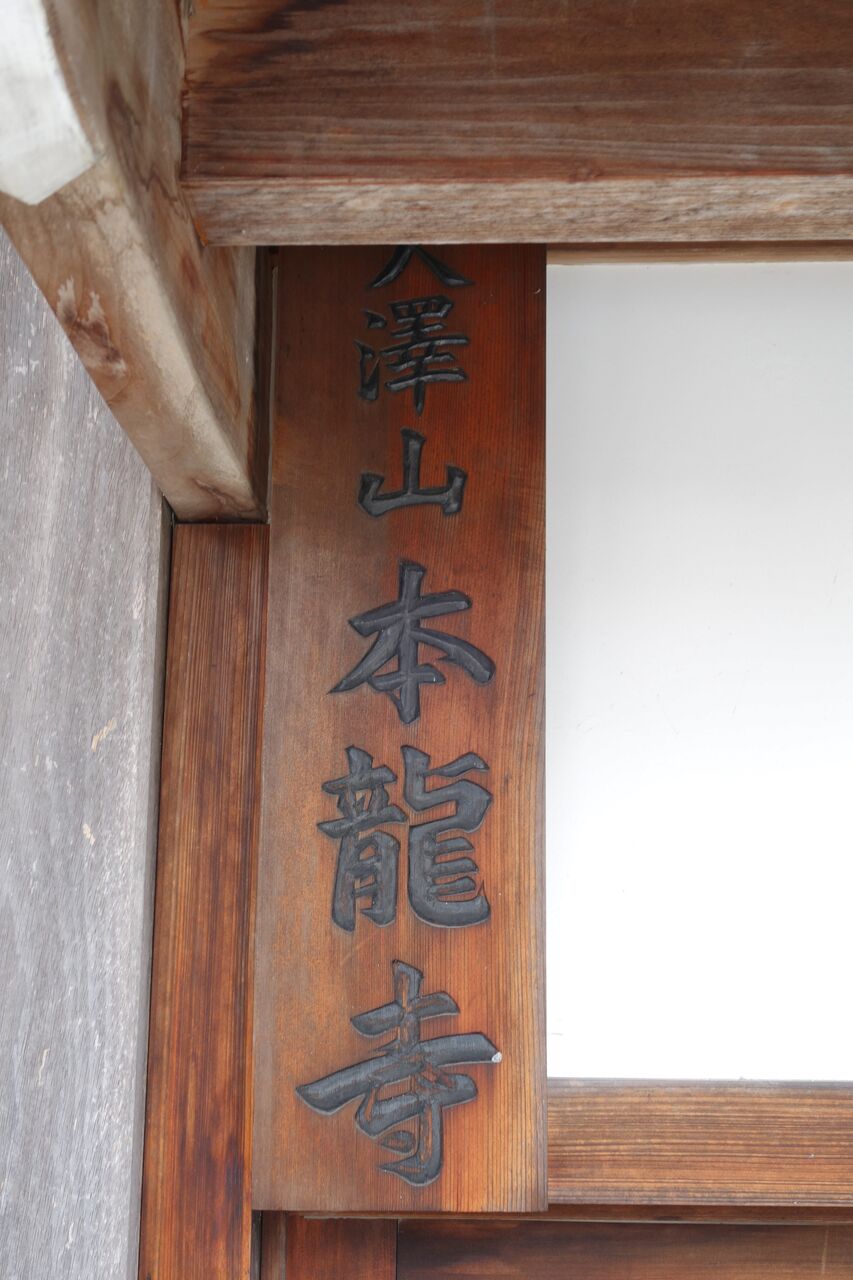 澤山本龍寺